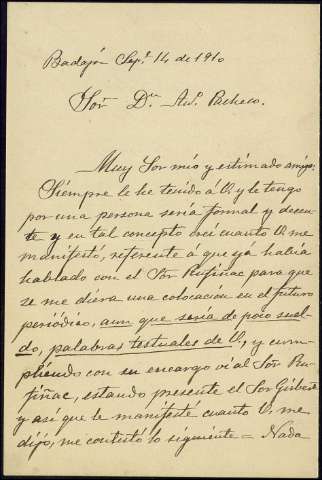 Badajóz Sepe. 14 de 1910
Sor. Dn. Anto. Pacheco.
Muy Sor mío y estimado amigo:
Siempre le he tenido á V. y le tengo
por una persona seria formal y decen-
te y en tal concepto creí cuanto V. me
manifestó, referente á que ya había
hablado con el Sor Rufiñac para que
se me diera una colocación en el futuro
periódico, aun que sería de poco suel-
do, palabras testuales de V, y cum-
pliendo con su encargo ví al Sor Ru-
fiñac, estando presente el Sor Guibert
y así que le manifesté cuanto V. me
dijó, me contestó lo siguiente = Nada